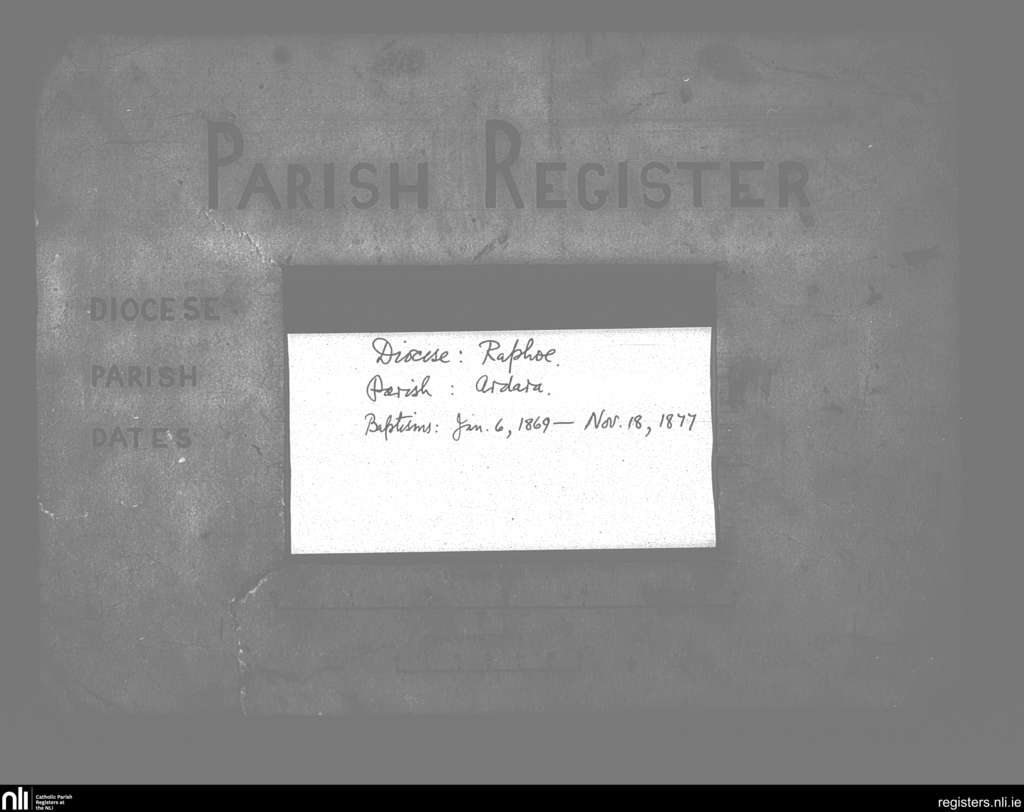 PARISH REGISTER
DIOCESE
PARISH
DATES
Diocese: Raphoe.
Parish : Ardara.
Baptisms: Jan. 6, 1869 — Nov. 18, 1877
nli
Catholic Parish
Registers at
the NLI
registers.nli.ie